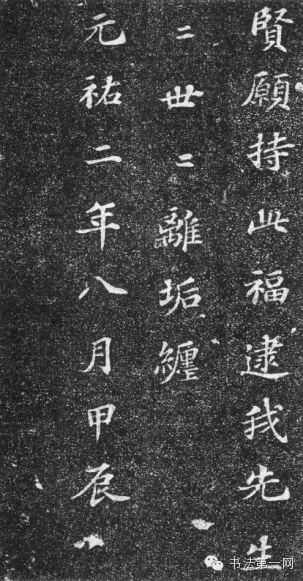 賢願持此福逮我先生
〻世〻離垢纏
元祐二年八月甲辰
书法第一网